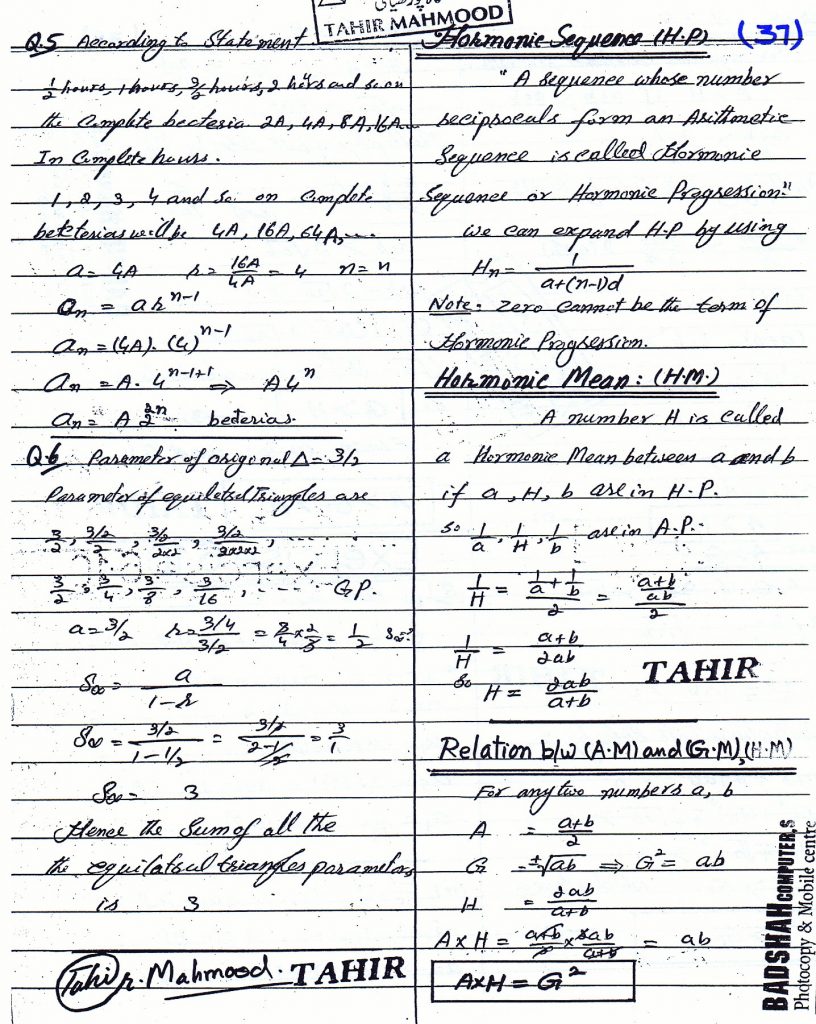 TAHIR MAHMOOD
(37)
Q.5 According to Statement
1/2 hours, 1 hours, 3/2 hours, 2 hours and so on
the Complete bectesia 2A, 4A, 8A, 16A...
In Complete hours.
1, 2, 3, 4 and so on complete
will be 4A, 16A, 64A, ...
a = 4A r = 16A/4A = 4 n = n
an = ar^n-1
an = (4A). (4)^n-1
an = A. 4^n-1+1 ⇒ A4^n
an = A 2^2n becterias.
Q.6 Parameter of origonal Δ = 3/2
Parameter of equilateral Triangles are
3/2, 3/2/2, 3/2/2x2, 3/2/2x2x2, ...
3/2, 3/4, 3/8, 3/16, ---- G.P.
a = 3/2 r = 3/4 / 3/2 = 3/4 x 2/3 = 1/2 S∞?
S∞ = a/1-r
S∞ = 3/2 / 1-1/2 = 3/2 / 2-1/2 = 3/1
S∞ = 3
Hence the Sum of all the
the equilateral triangles parameters
is 3
Tahir. Mahmood. TAHIR
Hormonic Sequence (H.P)
"A sequence whose number
reciprocals form an Arithmetic
Sequence is called Hormonic
Sequence or Hormonic Progression."
we can expand H.P by using
Hn = 1/a+(n-1)d
Note: Zero Cannot be the term of
Hormonic Progression.
Hormonic Mean: (H.M.)
A number H is called
a Hormonic Mean between a and b
if a, H, b are in H.P.
so 1/a, 1/H, 1/b are in A.P.
1/H = 1/a + 1/b / 2 = a+b/ab / 2
1/H = a+b/2ab
So H = 2ab/a+b
TAHIR
Relation b/w (A.M) and (G.M), (H.M)
For any two numbers a, b
A = a+b/2
G = ±√ab ⇒ G² = ab
H = 2ab/a+b
A x H = a+b/2 x 2ab/a+b = ab
AxH = G²
BADSHAH COMPUTER,S
Photocopy & Mobile centre